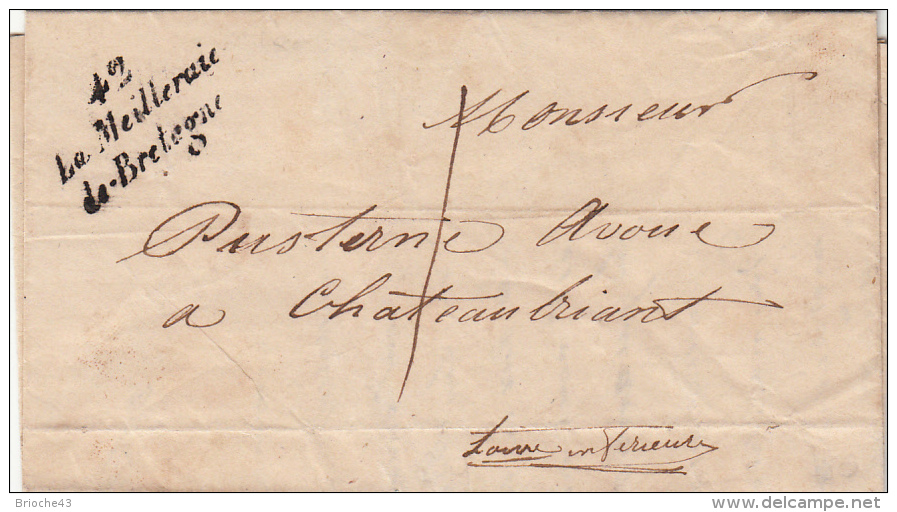 42
La Meilleraie
de-Bretagne
Monsieur
Pusterne Avoue
a Châteaubriant
Loire inferieure
Brioche43
www.delcampe.net